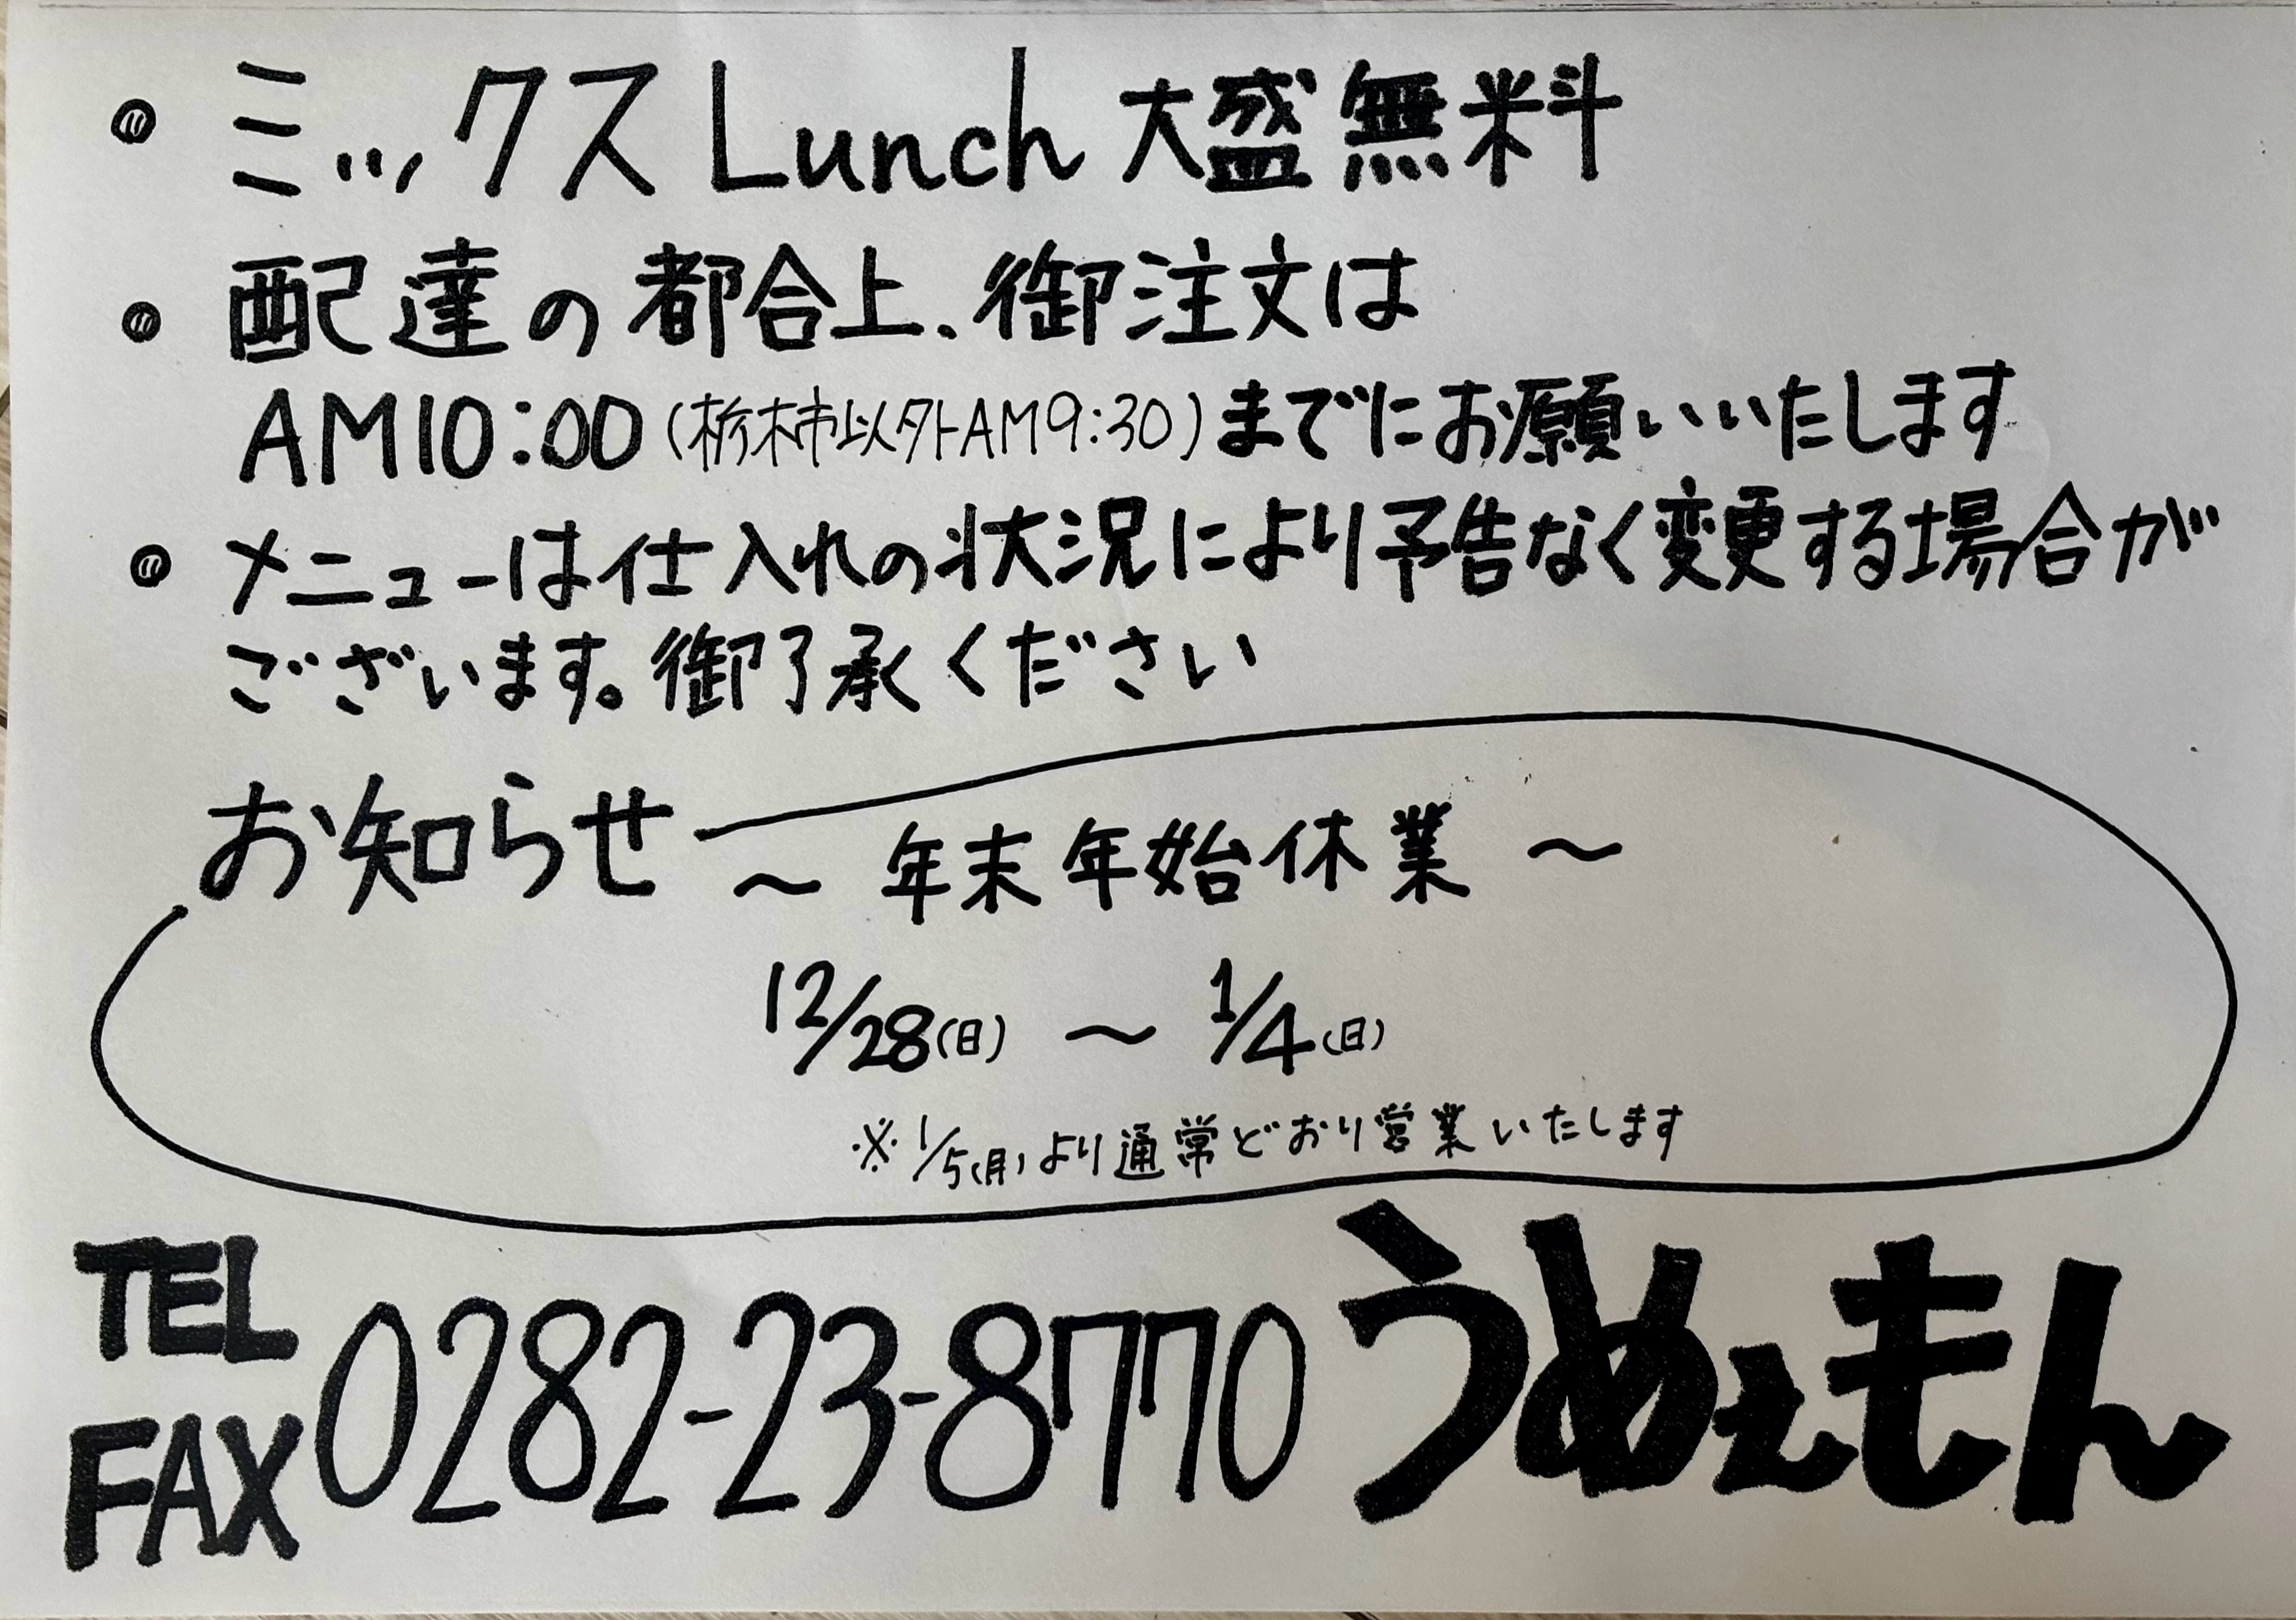 • ミックスLunch 大盛無料
• 配達の都合上、御注文は
AM10:00(栃木市以外AM9:30)までにお願いいたします
• メニューは仕入れの状況により予告なく変更する場合が
ございます。御了承ください
お知らせ
～ 年末年始休業 ～
12/28(日) ～ 1/4(日)
※1/5(月)より通常どおり営業いたします
TEL
FAX 0282-23-8770 うめぇもん